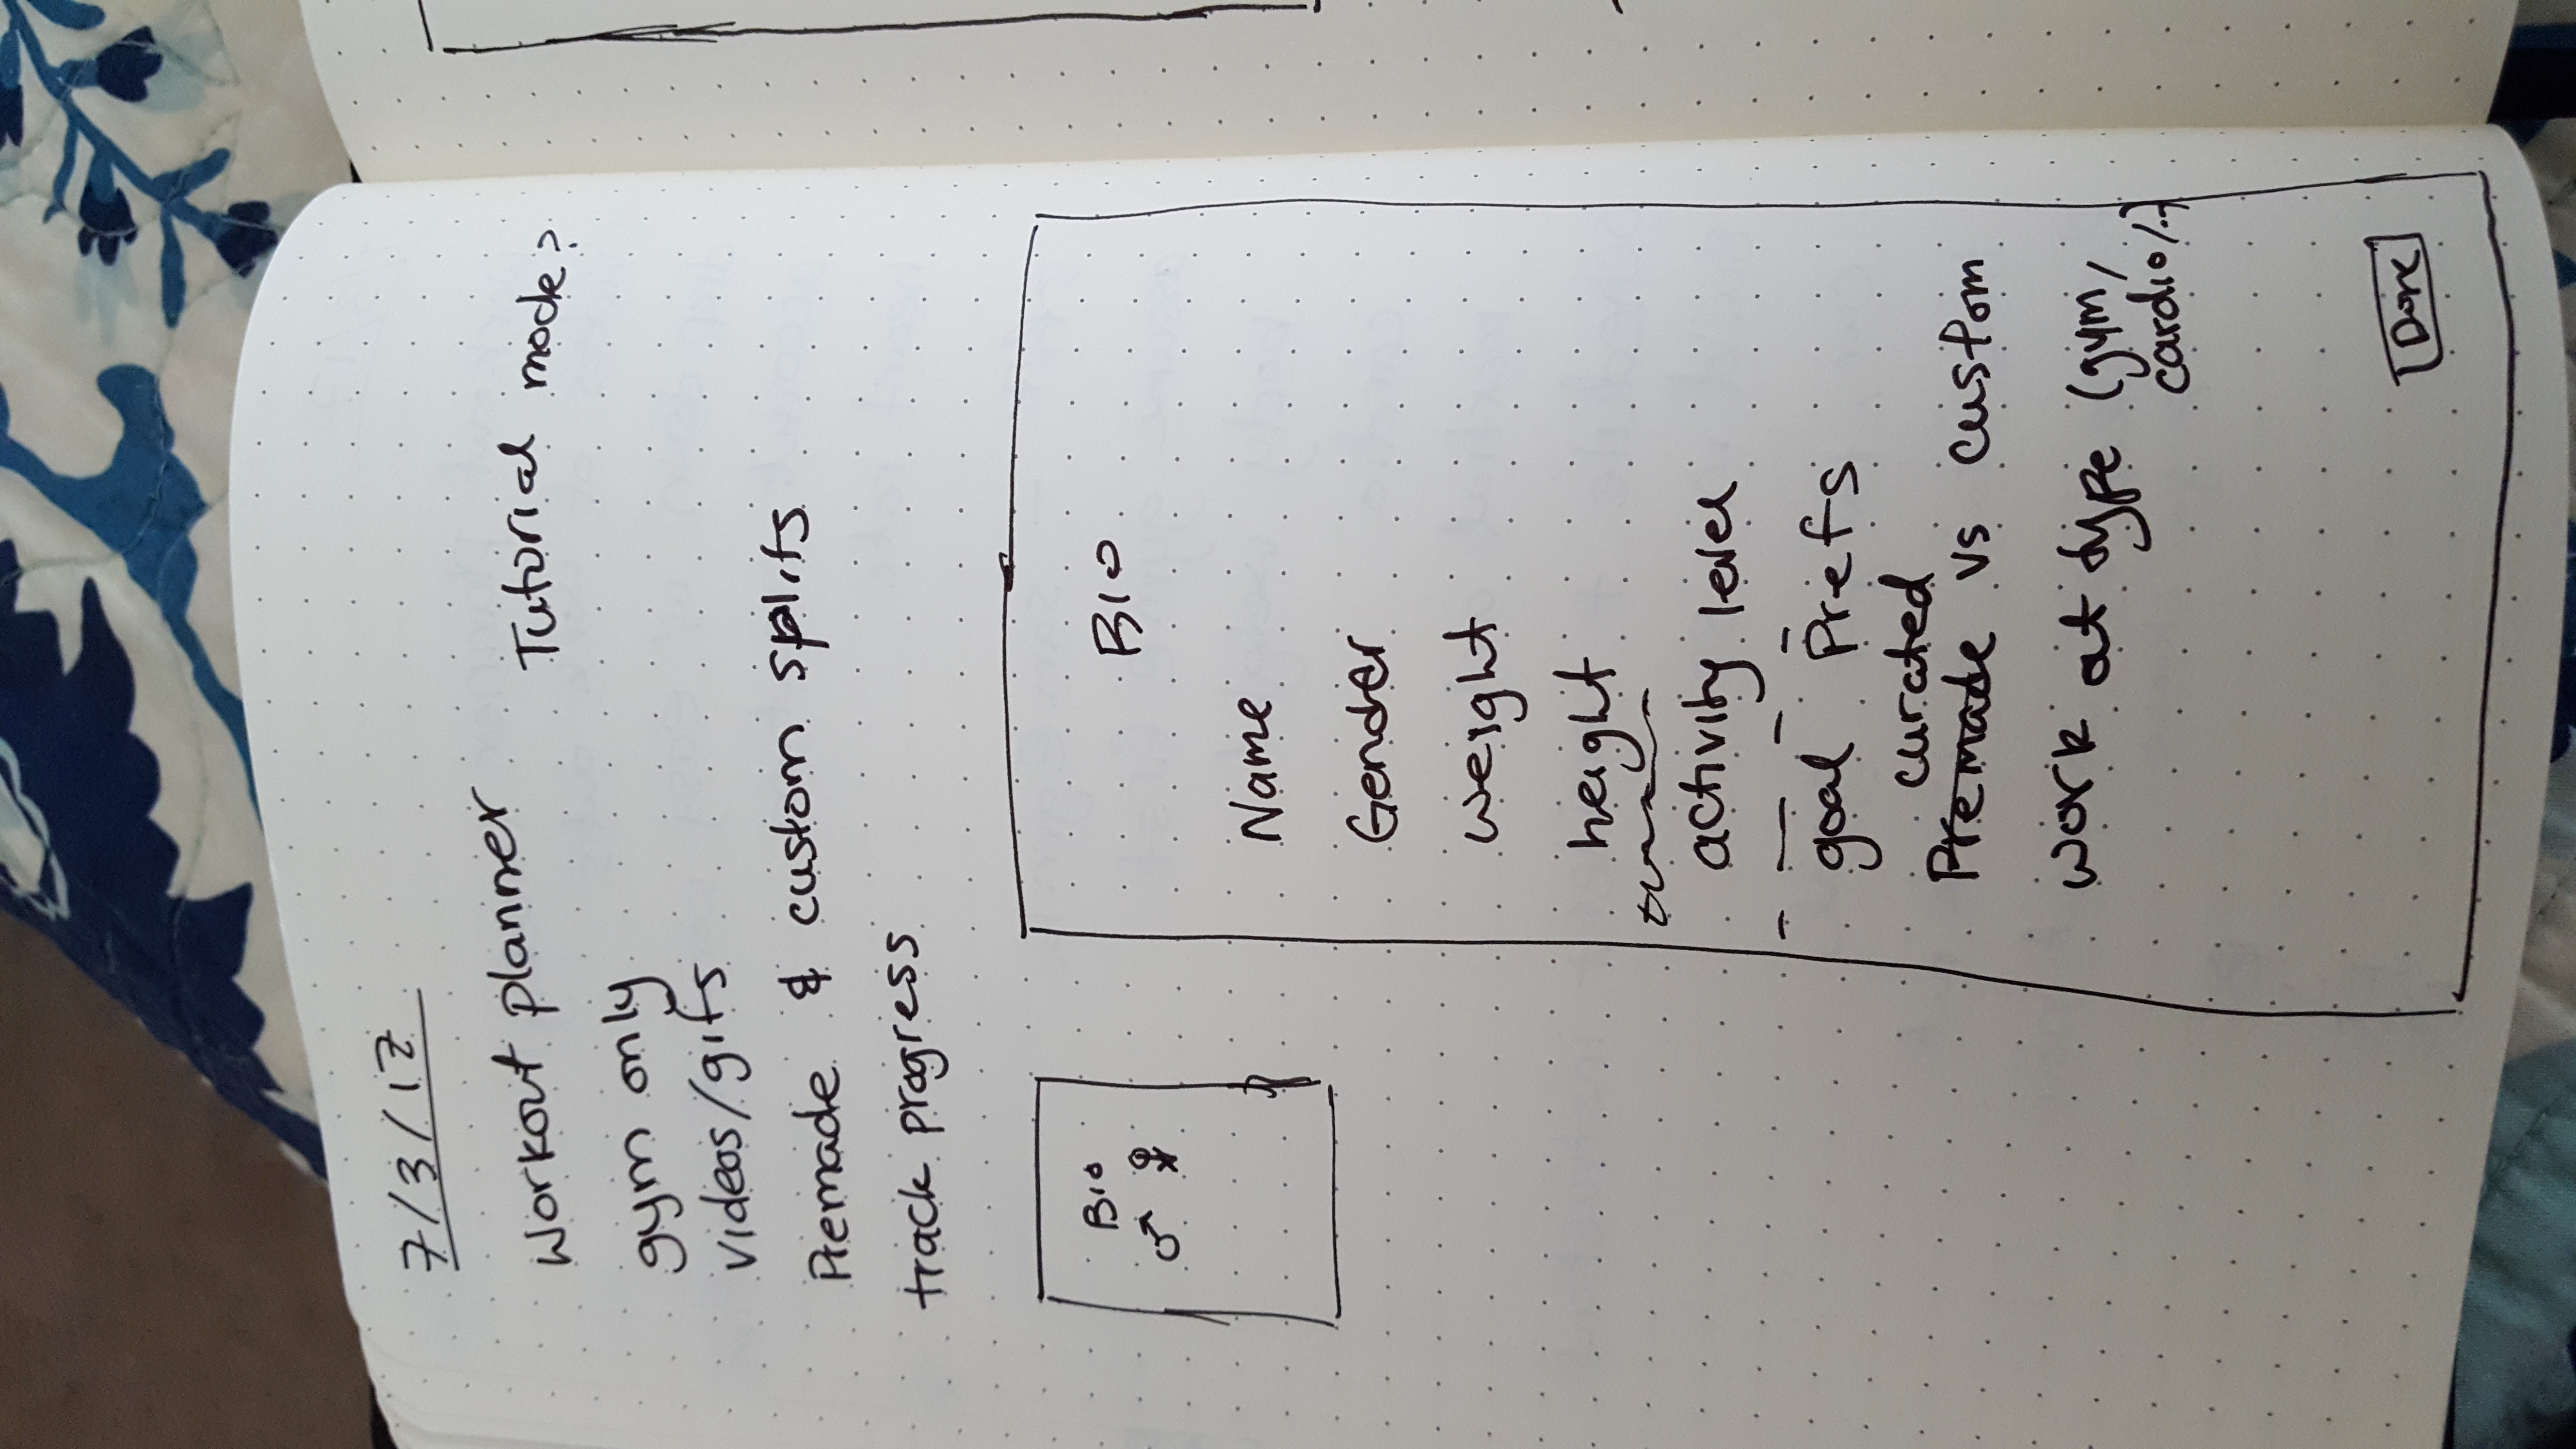 7/3/17
Workout planner
Tutorial mode?
gym only
videos/gifs
Premade & custom splits
track progress
Bio
♂ ♀
BIO
Name
Gender
weight
height
activity level
goal Prefs
curated
Premade vs custom
work out type (gym,
cardio/..)
Done